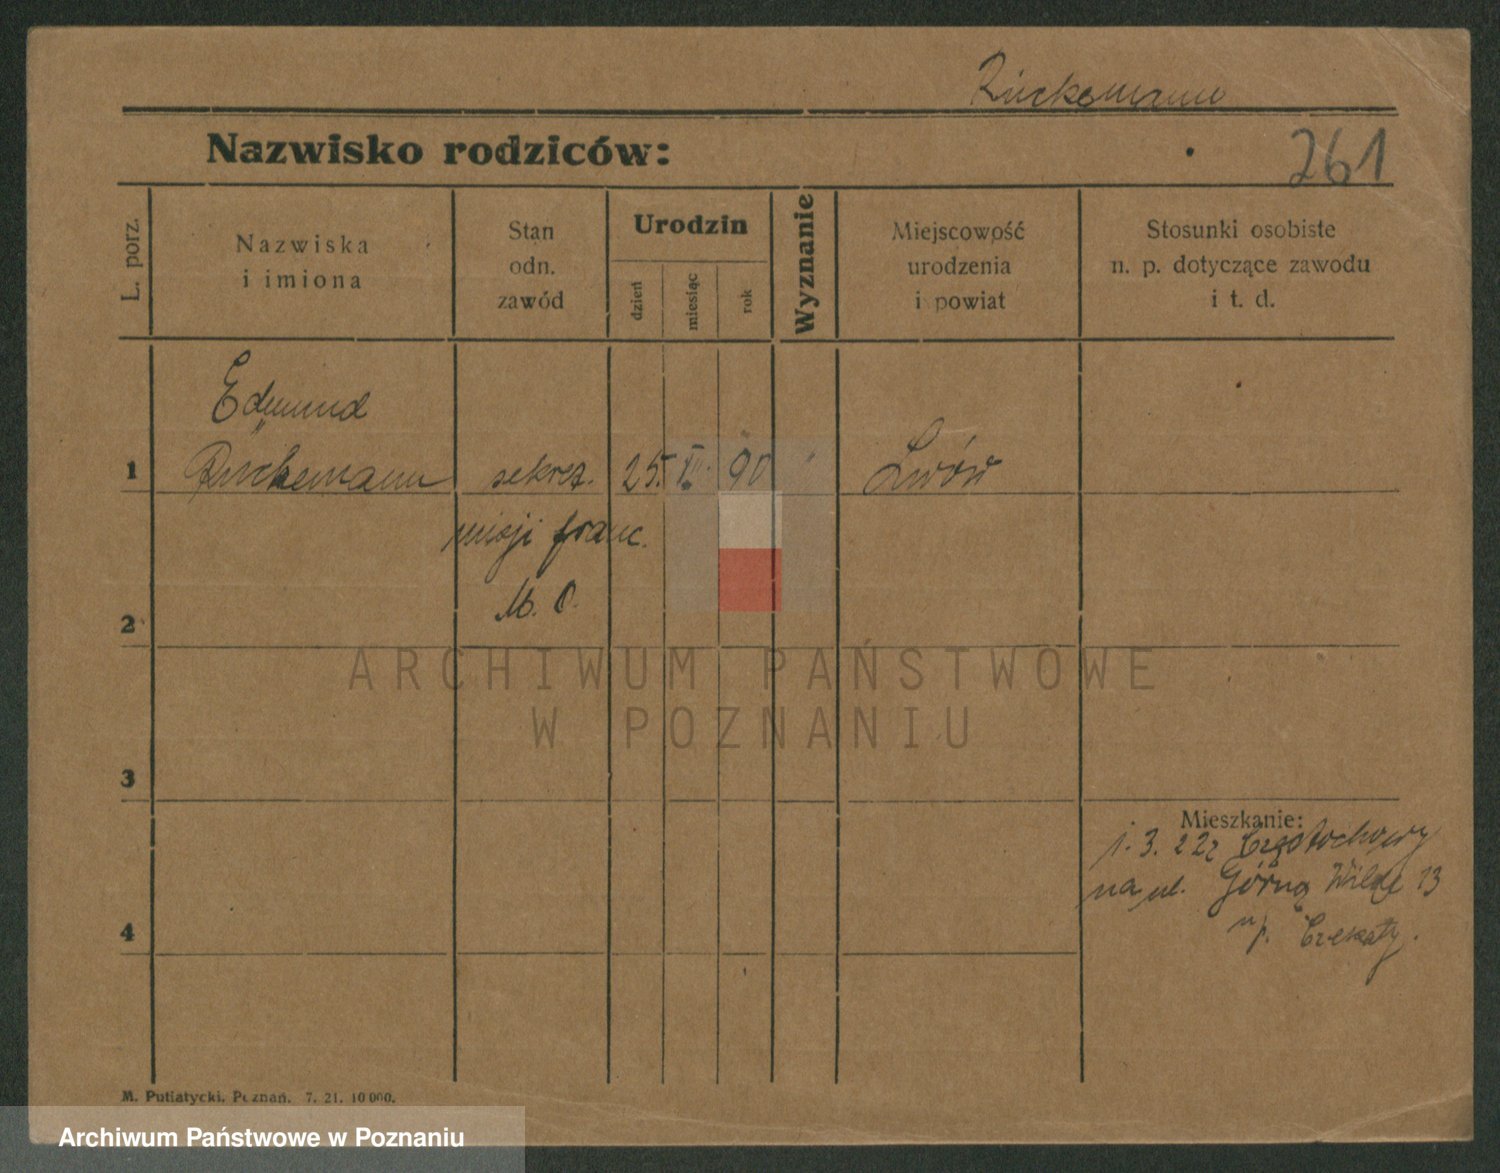 Rückemann
Nazwisko rodziców:
261
L. porz.
Nazwiska
i imiona
Stan
odn.
zawód
Urodzin
dzień
miesiąc
rok
Wyznanie
Miejscowość
urodzenia
i powiat
Stosunki osobiste
n. p. dotyczące zawodu
i t. d.
Edmund
1 Rückemann sekret. 25. 90 Lwów
misji franc.
M. O.
2
ARCHIWUM PAŃSTWOWE
W POZNANIU
3
Mieszkanie:
1. 3. 22 z Częstochowy
na ul. Górną Wildę 13
4
M. Putiatycki, Poznań. 7. 21. 10 000.
Archiwum Państwowe w Poznaniu